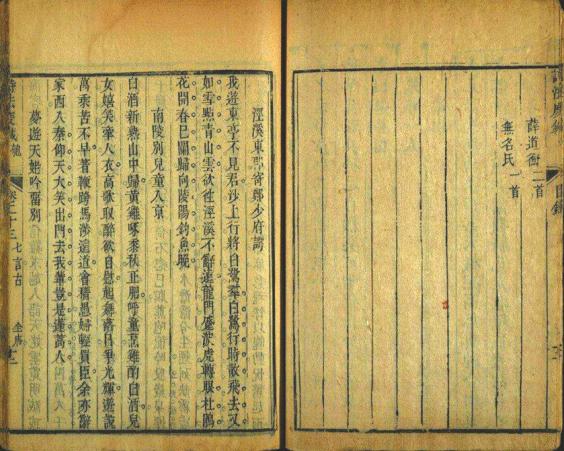 薛道衡二首
無名氏一首
目錄
涇溪東亭寄鄭少府諤
我遊東亭不見君沙上行將白鷺羣白鷺行時散飛去又
如雪點青山雲欲往涇溪不辭遠龍門蹙波虎眼轉杜鵑
花開春已闌歸向陵陽釣魚晚
南陵別兒童入京
白酒新熟山中歸黃雞啄黍秋正肥呼童烹雞酌白酒兒
女嬉笑牽人衣高歌取醉欲自慰起舞落日爭光輝遊說
萬乘苦不早著鞭跨馬涉遠道會稽愚婦輕買臣余亦辭
家西入秦仰天大笑出門去我輩豈是蓬蒿人
夢遊天姥吟留別
七言古